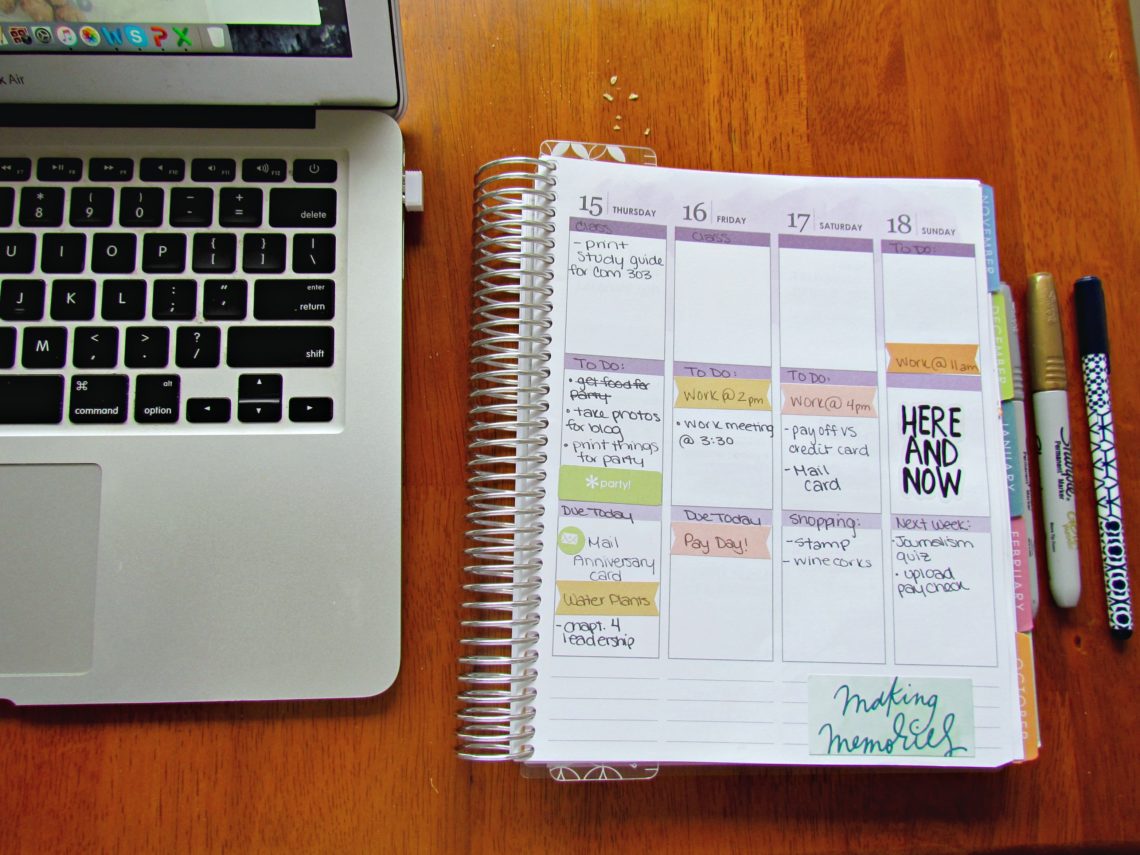 Air
F7
F8
F9
F10
F11
F12
* 8
( 9
) 0
_ -
+ =
delete
U
I
O
P
{ [
} ]
| \
J
K
L
: ;
" '
enter
return
M
< ,
> .
? /
shift
⌘
command
alt
option
15 THURSDAY
Class
- print
Study guide
for Com 303
TO DO:
• get food for
party
• take photos
for blog
• print things
for party
party!
DUE TODAY
Mail
Anniversary
card
Water Plants
- chapt. 4
leadership
16 FRIDAY
Class
TO DO:
Work @ 2pm
• work meeting
@ 3:30
Due Today
Pay Day!
17 SATURDAY
TO DO:
Work@ 4pm
- pay off VS
credit card
- Mail
card
Shopping:
- Stamp
- wine corks
18 SUNDAY
TO DO:
Work@ 11am
HERE
AND
NOW
Next Week:
• Journalism
quiz
• upload
paycheck
Making
Memories
NOVEMBER
DECEMBER
JANUARY
FEBRUARY
OCTOBER
Sharpie
Permanent Marker